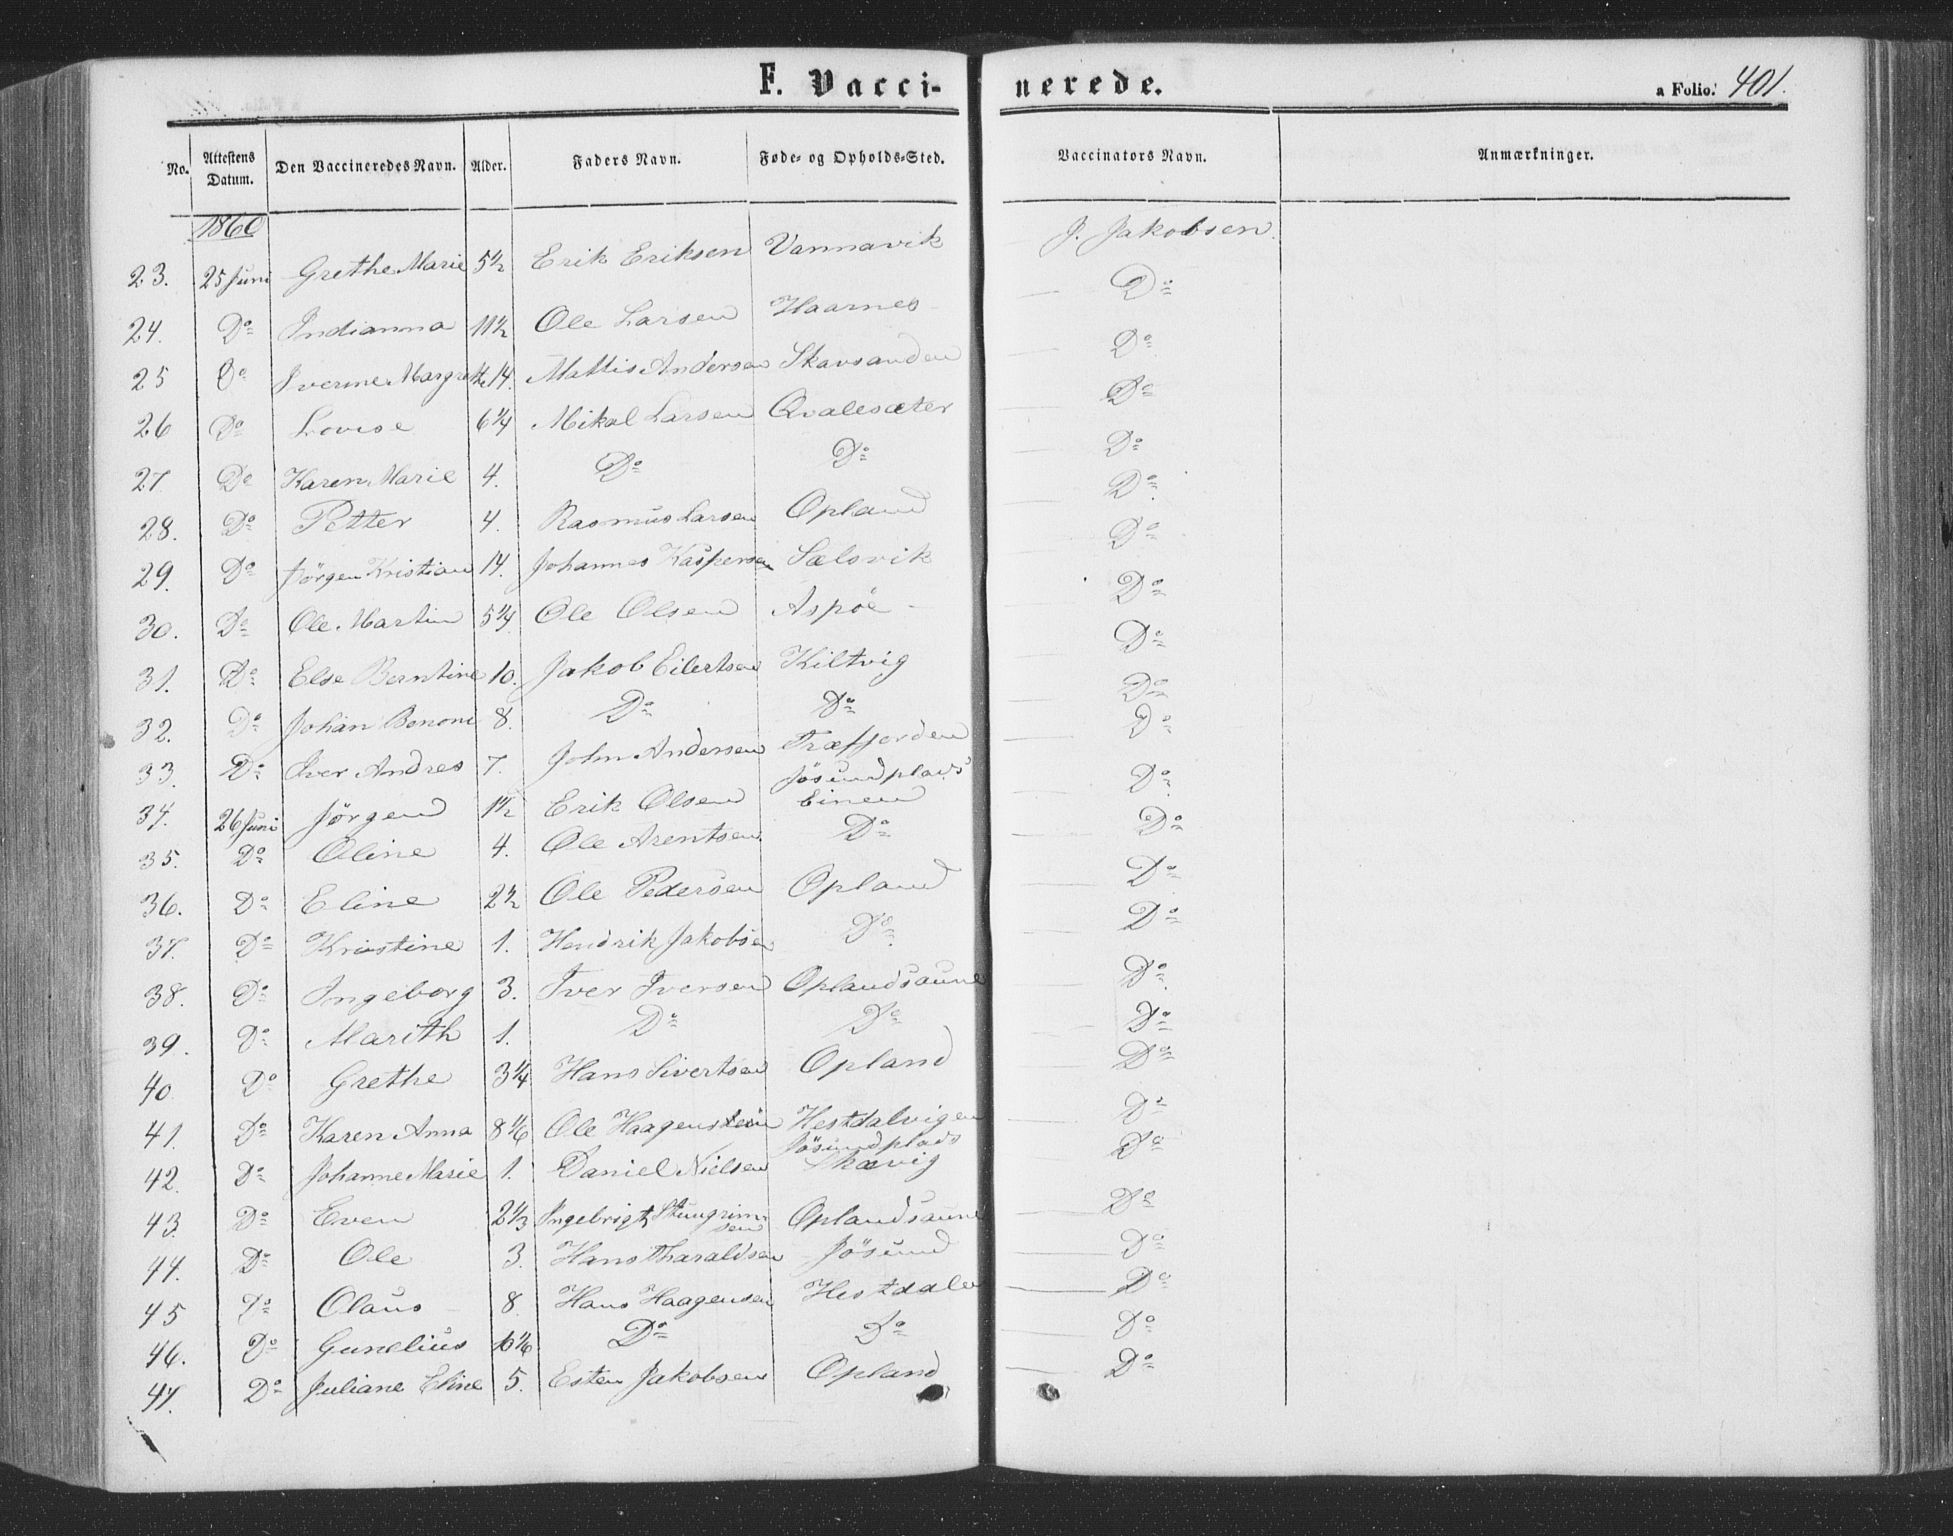 F. Vacci- nerede. a Folio: 401.
No. Attestens Datum. Den Vaccineredes Navn. Alder. Faders Navn. Føde- og Opholds-Sted. Vaccinators Navn. Anmærkninger.
1860
23. 25 Juni Grethe Marie 5 1/2 Erik Eriksen Vannavik J. Jakobsen.
24. Do Indianna 11 1/2 Ole Larsen Haarnes Do
25 Do Iverine Margrethe 14. Mattis Andersen Skavsanden Do
26 Do Lovise 6 1/4 Mikal Larsen Qvalesæter Do
27 Do Karen Marie 4. Do Do Do
28. Do Petter 4. Rasmus Larsen Opland Do
29. Do Jörgen Kristian 14. Johannes Kaspersen Sælsvik Do
30. Do Ole Martin 5 1/4 Ole Olsen Aspöe Do
31. Do Else Berntine 10. Jakob Eilertsen Kiltvig Do
32. Do Johan Benoni 8. Do Do Do
33. Do Iver Andres 7. John Andersen Træfjorden Do
34. 26 Juni Jörgen 1 1/2 Erik Olsen Jösundplads Einen Do
35. Do Oline 4. Ole Arentsen Do Do
36. Do Eline 2 1/2 Ole Pedersen Opland Do
37. Do Kristine 1. Hendrik Jakobsen Do Do
38. Do Ingeborg 3. Iver Iversen Oplandsaune Do
39. Do Marith 1. Do Do Do
40 Do Grethe 3 1/4 Hans Sivertsen Opland Do
41. Do Karen Anna 8 1/6 Ole Haagensen Hestdalvigen Do
42. Do Johanne Marie 1. Daniel Nielsen Jösundplads Skavig Do
43. Do Even 2 1/3 Ingebrigt Stengrimsen Oplandsaune Do
44. Do Ole 3. Hans Tharaldsen Jösund Do
45 Do Olaus 8. Hans Haagensen Hestdalen Do
46. Do Gunelius 10 1/6 Do Do Do
47. Do Juliane Eline 5. Esten Jakobsen Opland Do